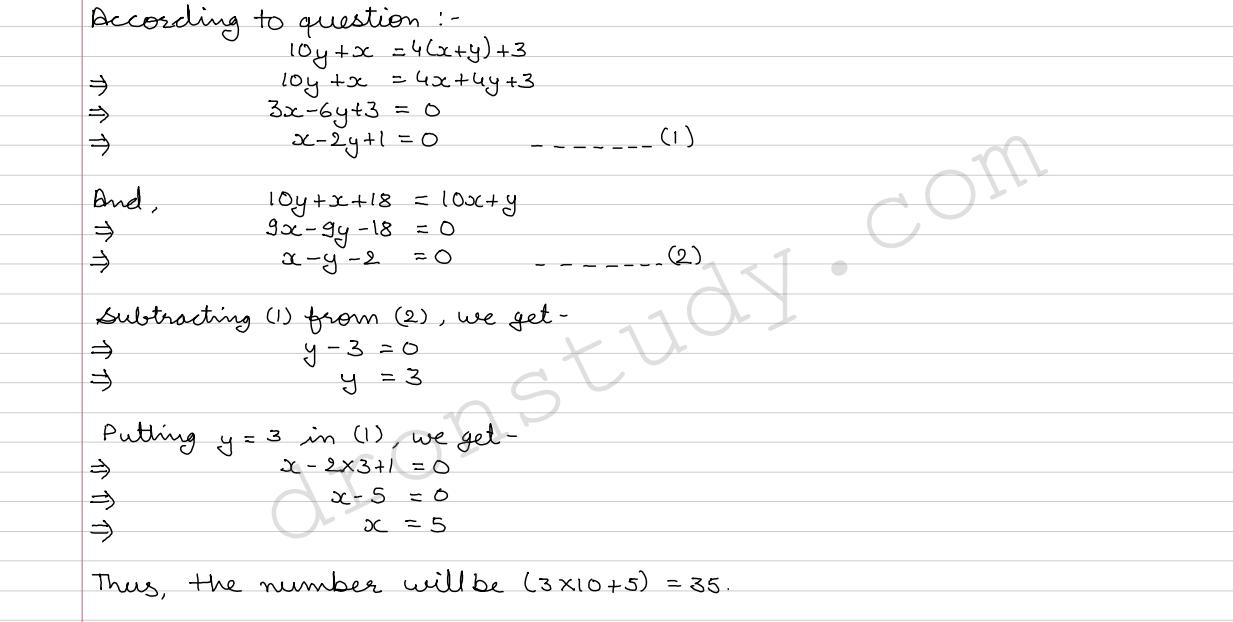 According to question :-
10y+x = 4(x+y)+3
⇒ 10y+x = 4x+4y+3
⇒ 3x-6y+3 = 0
⇒ x-2y+1 = 0 -------(1)
And, 10y+x+18 = 10x+y
⇒ 9x-9y-18 = 0
⇒ x-y-2 = 0 -------(2)
Subtracting (1) from (2), we get-
⇒ y-3 = 0
⇒ y = 3
Putting y = 3 in (1), we get-
⇒ x-2×3+1 = 0
⇒ x-5 = 0
⇒ x = 5
Thus, the number will be (3×10+5) = 35.
dronstudy.com